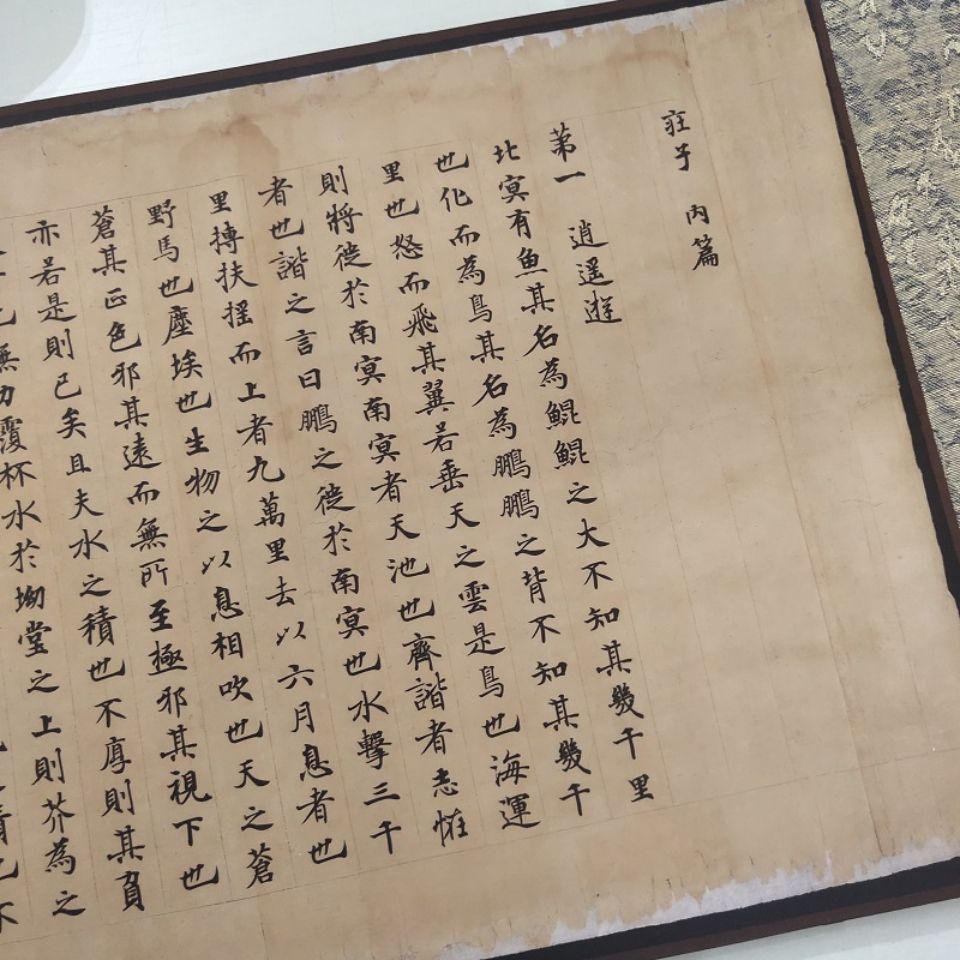 莊子 內篇
第一 逍遥遊
北冥有魚其名為鯤鯤之大不知其幾千里
也化而為鳥其名為鵬鵬之背不知其幾千
里也怒而飛其翼若垂天之雲是鳥也海運
則將徙於南冥南冥者天池也齊諧者志恠
者也諧之言曰鵬之徙於南冥也水擊三千
里摶扶摇而上者九萬里去以六月息者也
野馬也塵埃也生物之以息相吹也天之蒼
蒼其正色邪其遠而無所至極邪其視下也
亦若是則已矣且夫水之積也不厚則其負
也無力覆杯水於坳堂之上則芥為之
也不